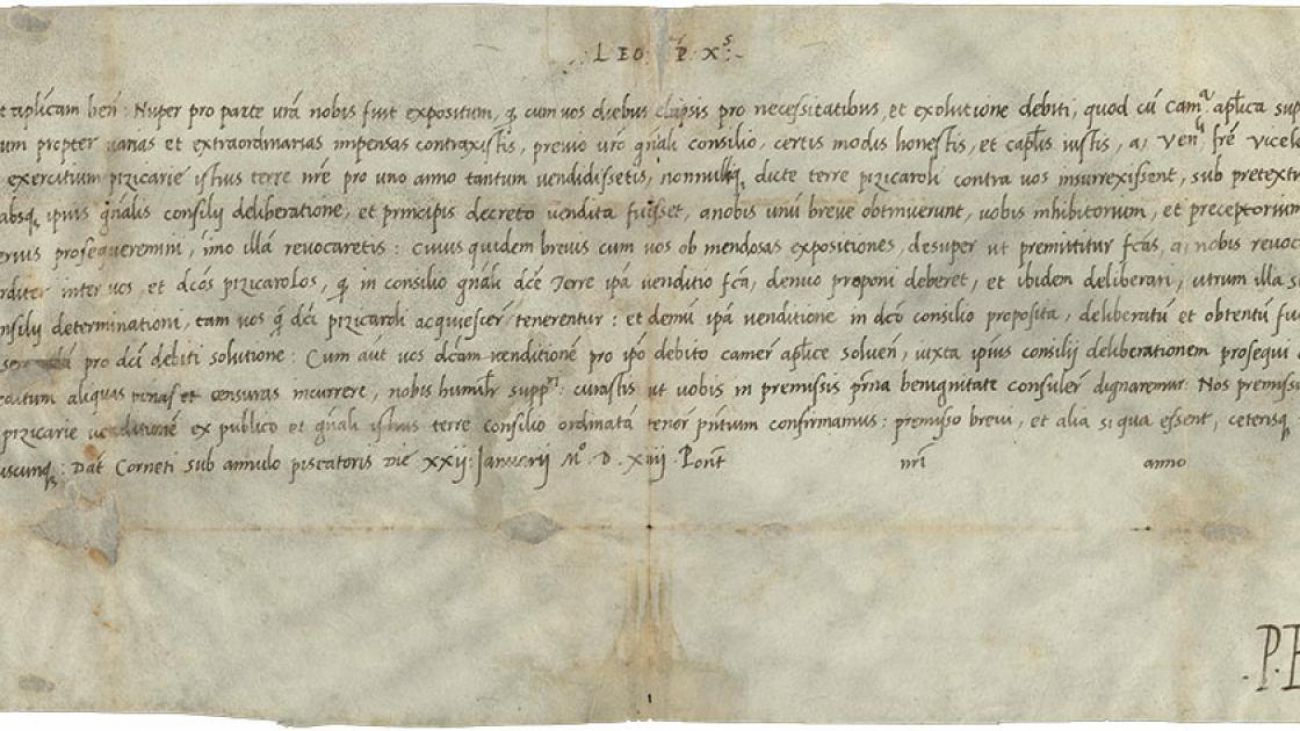 .LEO. P̄ Xˢ:
aplicam ben̄: Nuper pro parte urā nobis fuit expositum, q cum uos diebus elapsis pro necessitatibus, et exolutione debiti, quod cū camᵃ aplica
propter uarias et extraordinarias impensas contraxistis, preuio uro gn̄ali consilio, certis modis honestis, et caplis iustis, a, Ven frē
exercitium pizicarie istius terre nrē pro uno anno tantum uendidissetis, nonnulliq, dicte terre pizicaroli contra uos insurrexissent, sub pretextu
absq, ipius gn̄alis consilij deliberatione, et principis decreto uendita fuisset, anobis unū breue obtinuerunt, uobis inhibitorium, et preceptorium
prosequeremini, imo illā reuocaretis: Cuius quidem breuis cum uos ob mendosas expositiones, desuper ut premittitur fcas, a, nobis
inter uos, et dcos pizicarolos, q in consilio gn̄ali dcē Terre ipā uenditio fcā, denuo proponi deberet, et ibidem deliberari, utrum illa
determinationi, tam uos q̄ dci pizicaroli acquiescer̄ tenerentur: et demū ipā uenditione in dcō consilio proposita, deliberatū et obtentū
pro dci debiti solutione: Cum aūt uos dcam uenditionē pro ipo debito camer̄ aplice soluen̄, iuxta ipius consilij deliberationem prosequi
aliquas penas et censuras incurrere, nobis humilr supp: curastis ut uobis in premissis prna benignitate consuler̄ dignaremur: Nos
pizicarie uenditionē ex publico et gn̄ali istius terre consilio ordinatā tenor pntium confirmamus: premisso breui, et alia si qua essent, ceterisq,
Dat̄ Corneti sub annulo piscatoris Die XXij: Januarij Mᵒ. D. Xiiij. Pont̄ nri anno
.P.